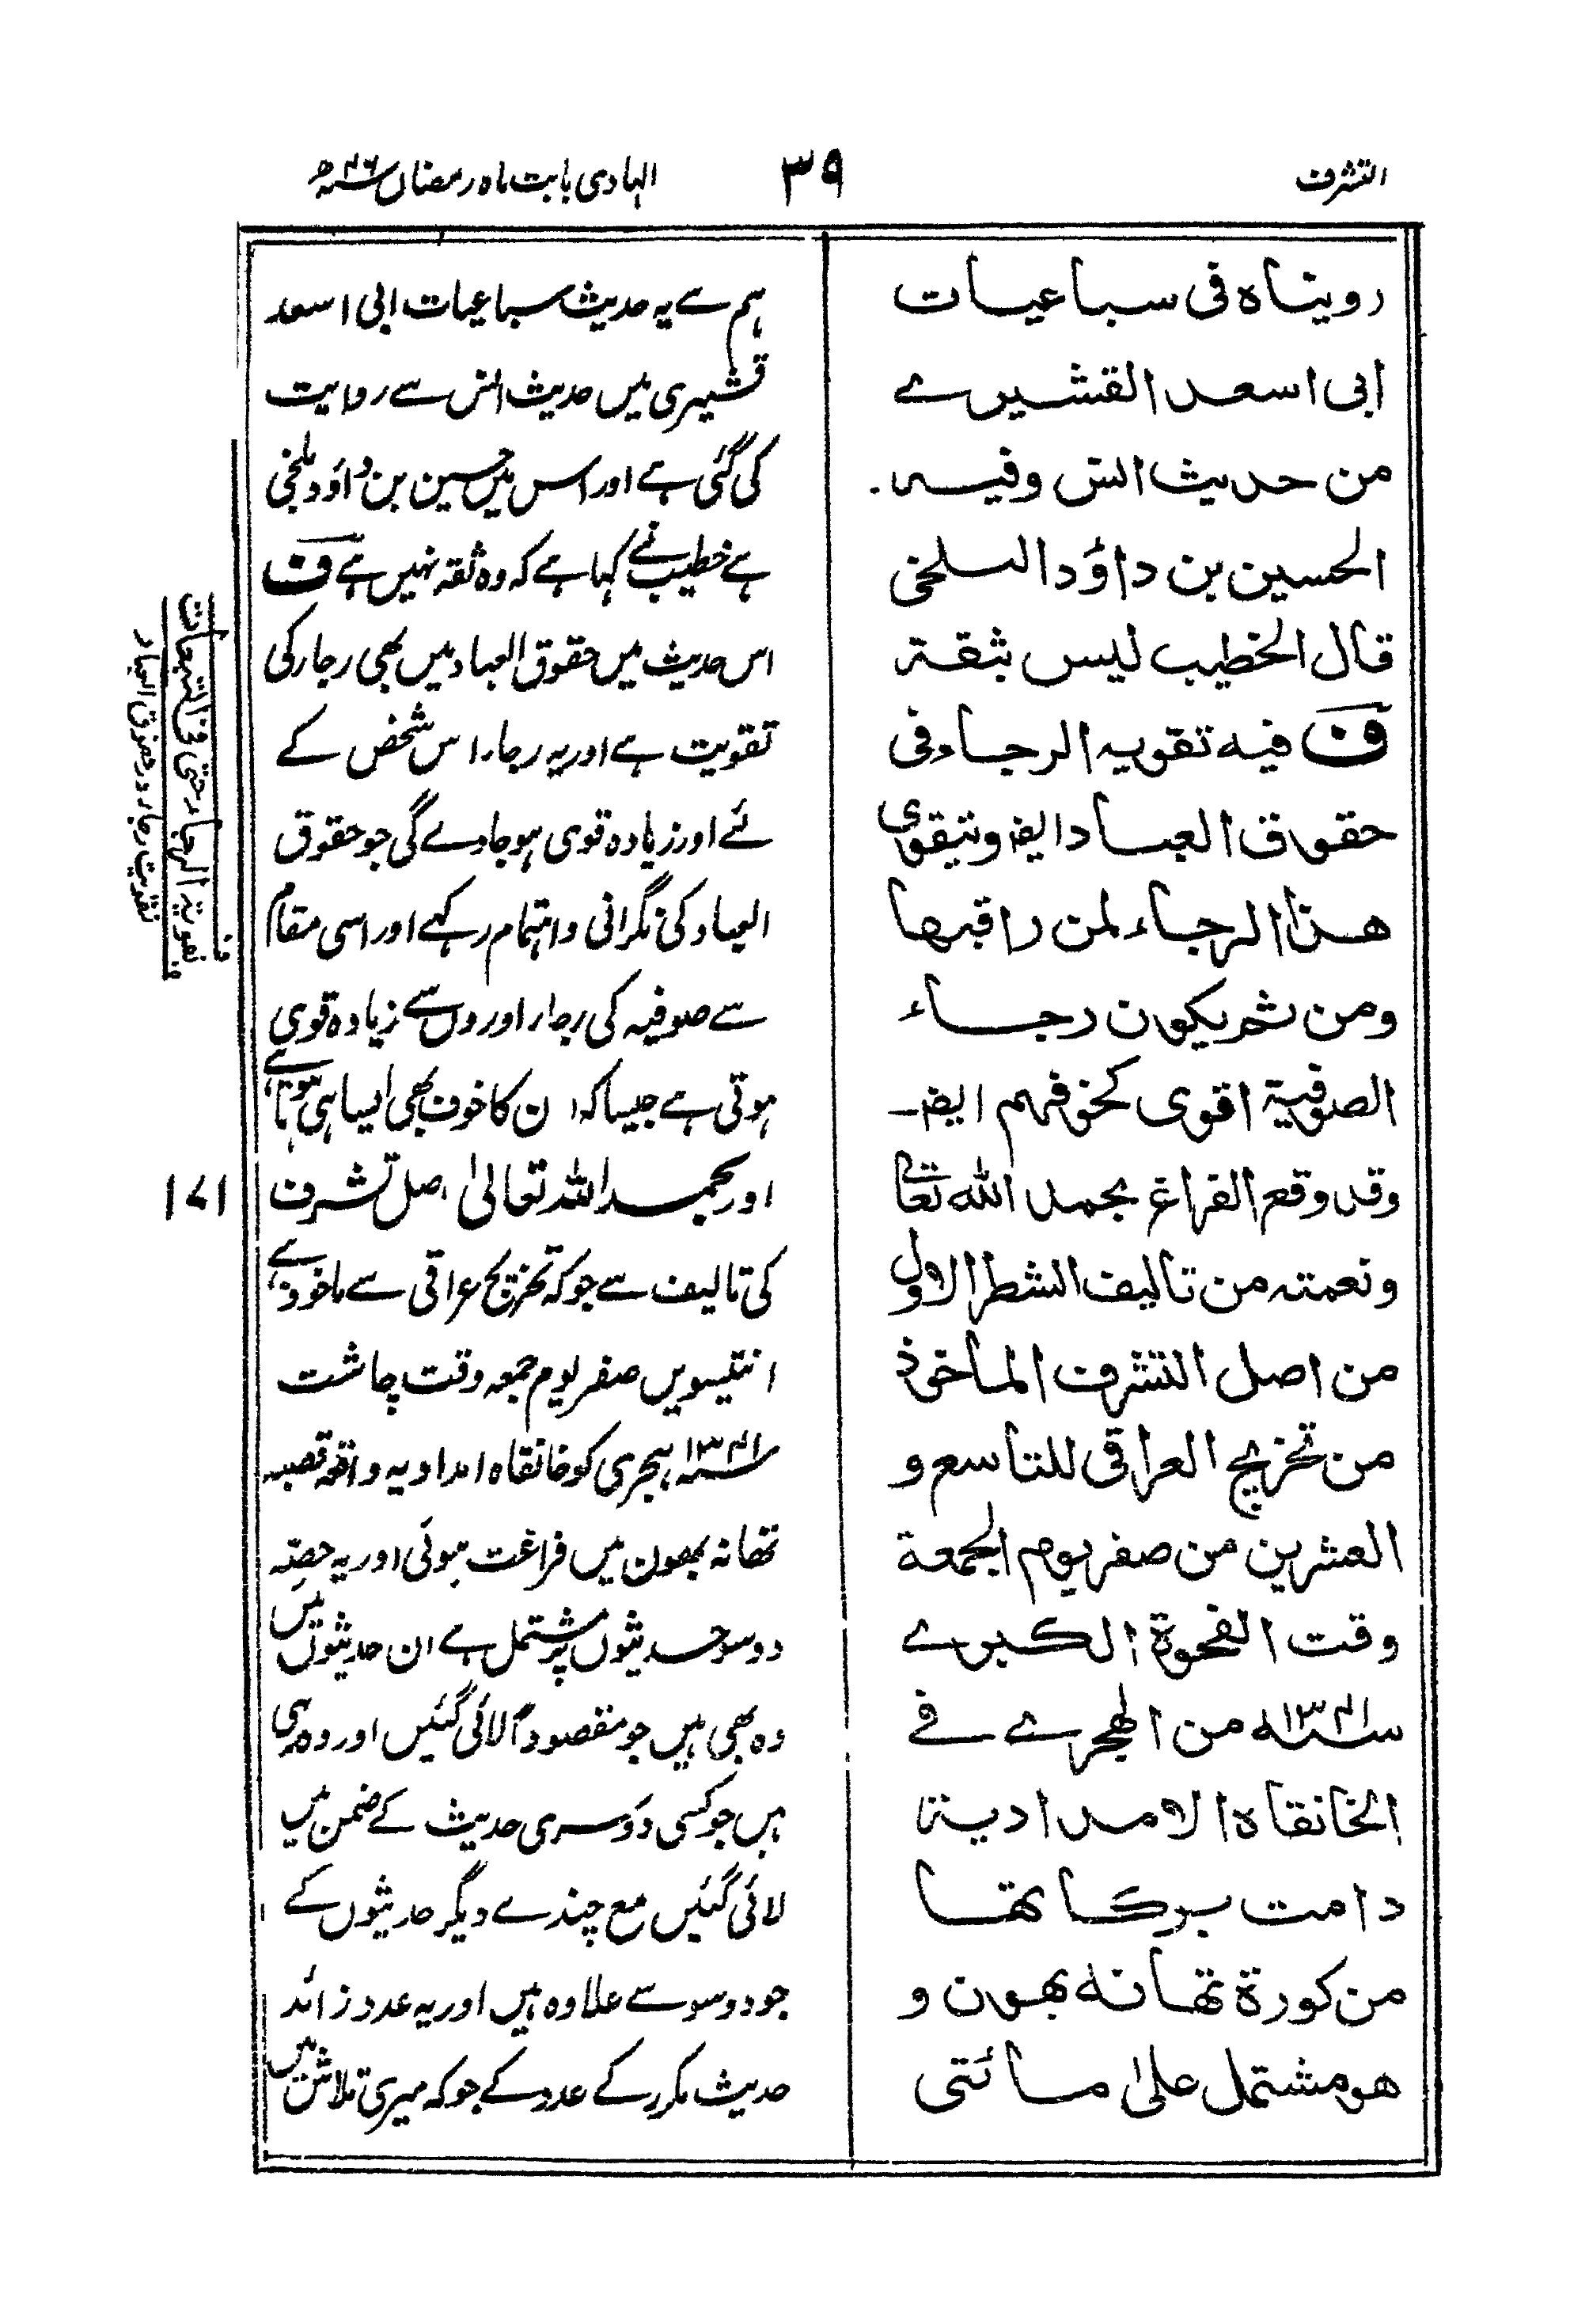 التشرف
۳۹
الہادی بابت ماہ رمضان سنہ ۴۶ھ
رویناہ فی سباعیات
ابی اسعد القشیرے
من حدیث انس وفیہ
الحسین بن داؤد البلخی
قال الخطیب لیس بثقۃ
ف فیہ تقویۃ الرجاء فی
حقوق العباد ایضا ویتقوی
ھذا الرجاء لمن راقبھا
ومن ثم یکون رجاء
الصوفیۃ اقوی کخوفھم ایضا
وقد وقع الفراغ بحمد اللہ تعالی
ونعمتہ من تالیف الشطر الاول
من اصل التشرف الماخوذ
من تخریج العراقی للتاسع و
العشرین من صفر یوم الجمعۃ
وقت الضحوۃ الکبرے
سنہ ۱۳۴۱ من الھجرے فی
الخانقاہ الامدادیۃ
دامت برکاتھا
من کورۃ تھانہ بھون و
ھو مشتمل علیٰ مائتی
ہم سے یہ حدیث سباعیات ابی اسعد
قشیری میں حدیث انس سے روایت
کی گئی ہے اور اس میں حسین بن داؤد بلخی
ہے خطیب نے کہا ہے کہ وہ ثقہ نہیں ہے ف
اس حدیث میں حقوق العباد میں بھی رجاء کی
تقویت ہے اور یہ رجاء اس شخص کے
لئے اور زیادہ قوی ہو جاوے گی جو حقوق
العباد کی نگرانی و اہتمام رکہے اور اسی مقام
سے صوفیہ کی رجاء اوروں سے زیادہ قوی
ہوتی ہے جیسا کہ ان کا خوف بھی ایسا ہی ہوتا ہے
اور بحمد اللہ تعالیٰ اصل تشرف
کی تالیف سے جو کہ تخریج عراقی سے ماخوذ ہے
انتیسویں صفر یوم جمعہ وقت چاشت
سنہ ۱۳۴۱ ہجری کو خانقاہ امدادیہ واقع قصبہ
تھانہ بھون میں فراغت ہوئی اور یہ حصہ
دو سو حدیثوں پر مشتمل ہے ان حدیثوں میں
وہ بھی ہیں جو مقصوداً لائی گئیں اور وہ بھی
ہیں جو کسی دوسری حدیث کے ضمن میں
لائی گئیں مع چندے دیگر حدیثوں کے
جو دو سو سے علاوہ ہیں اور یہ عدد زائد
حدیث مکرر کے عدد کے جو کہ میری تلاش میں
ف
تقویۃ الرجاء حتی فی التبعات
ف
تقویت رجاء در حقوق العباد
۱۷۱